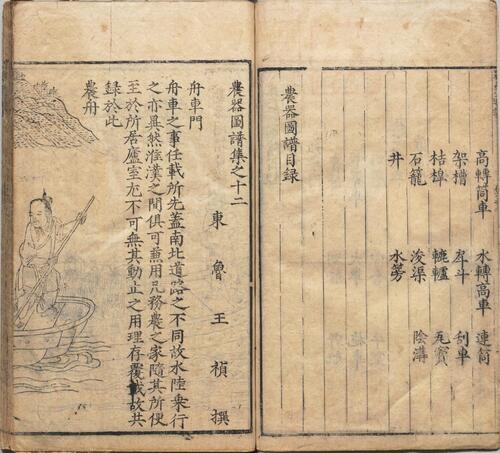 高轉筒車 水轉高車 連筒
架槽 戽斗 刮車
桔槹 轆轤 瓦竇
石籠 浚渠 陰溝
井 水篣
農器圖譜目錄
農器圖譜集之十二
東魯王禎撰
舟車門
舟車之事任載所先蓋南北道路之不同故水陸乘行
之亦異然淮漢之間俱可兼用凡務農之家隨其所便
至於所居廬室尤不可無其動止之用理存覆載故共
錄於此
農舟